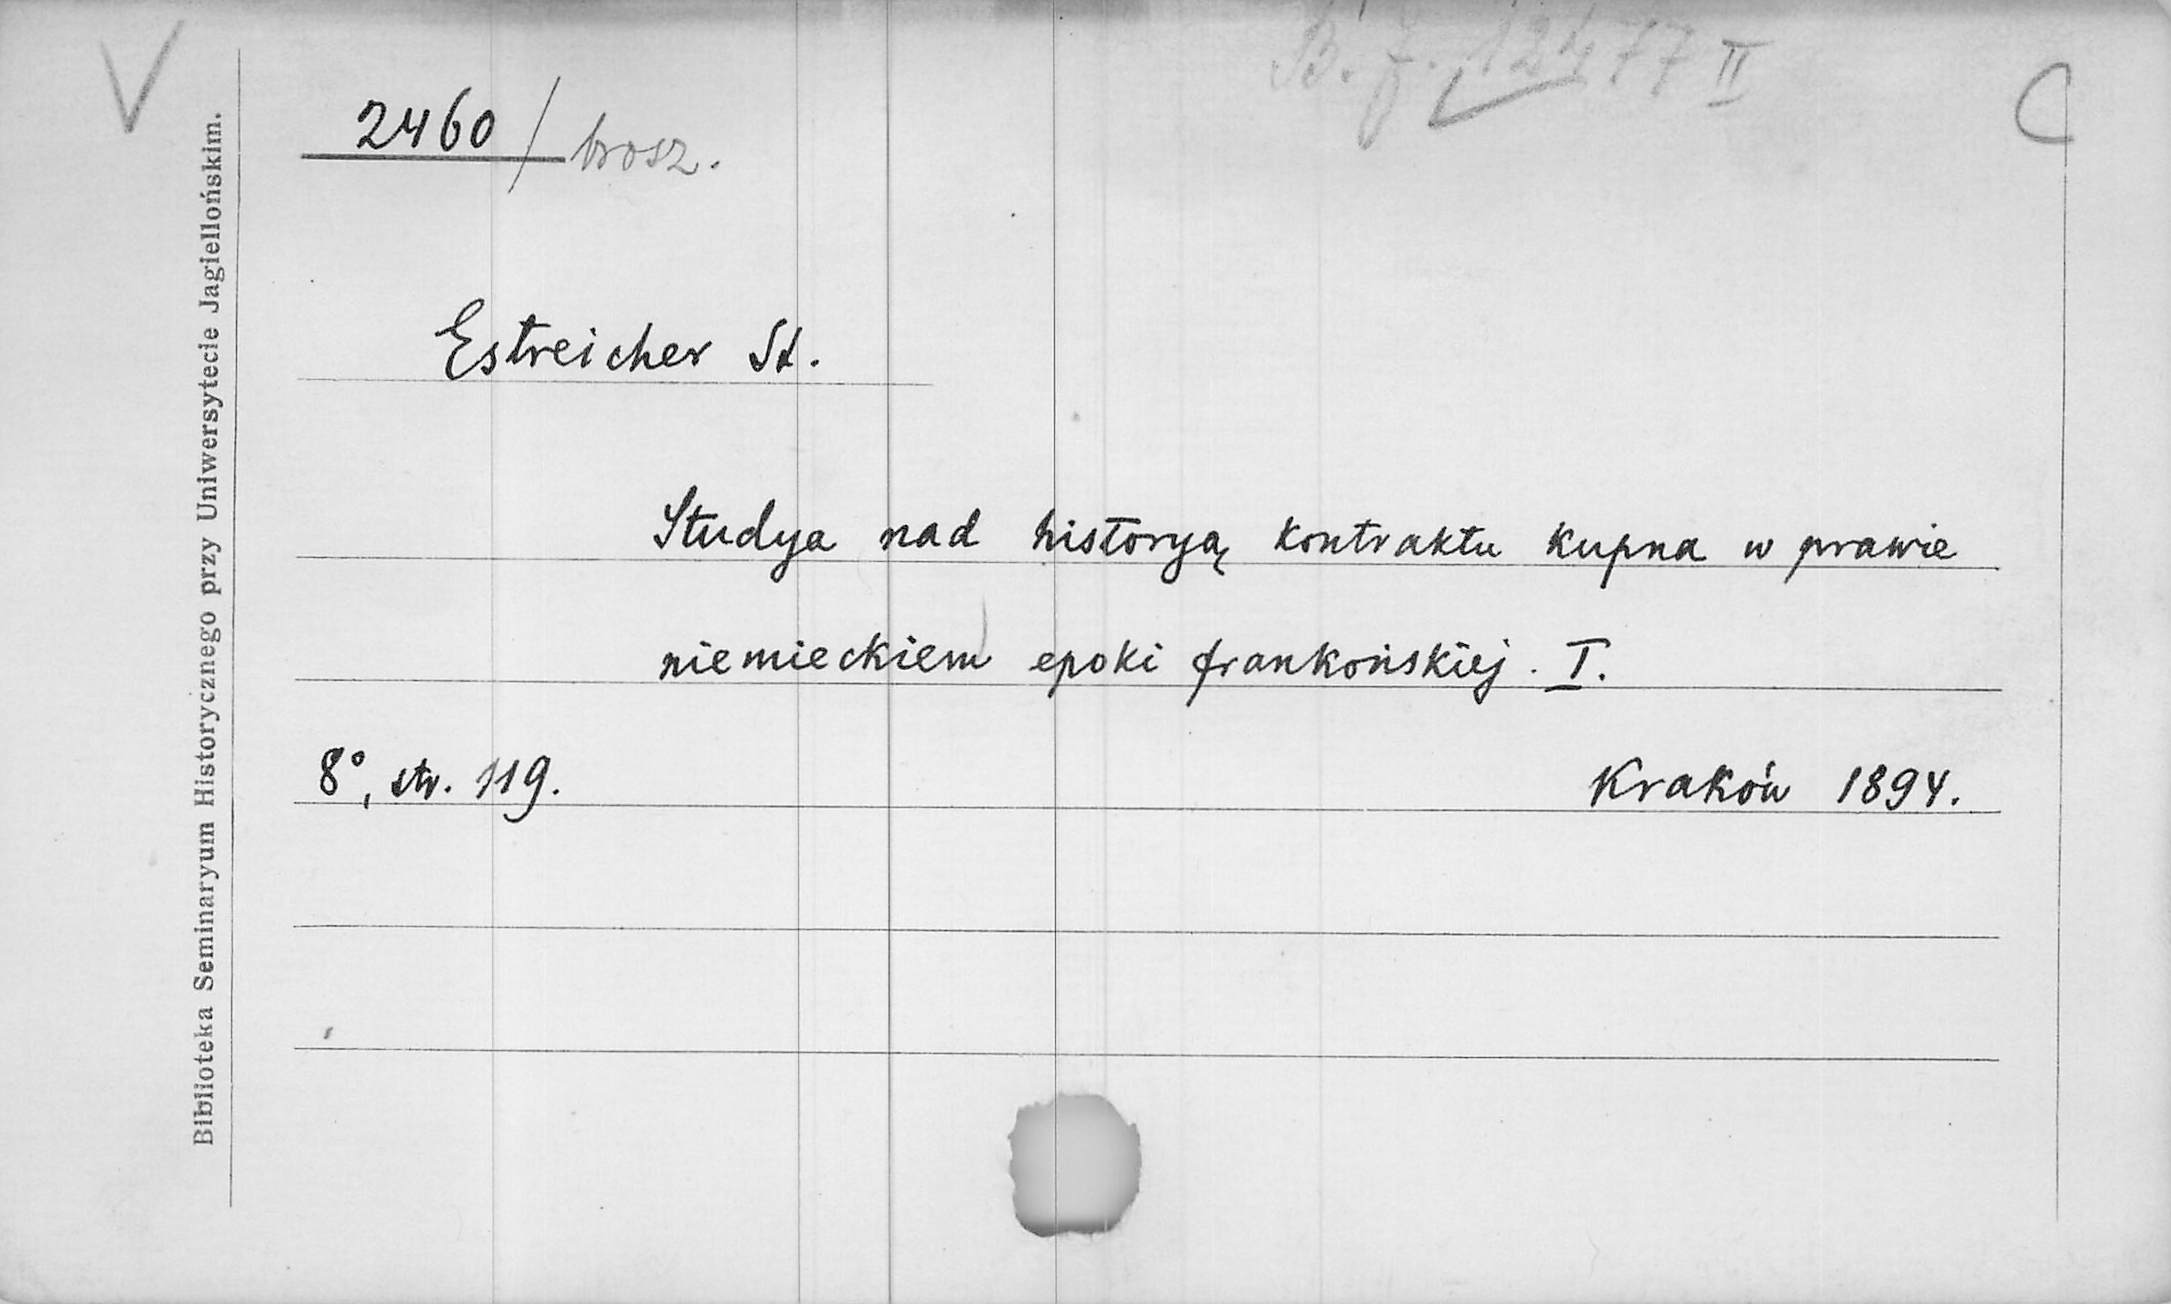 V
B. J. 12477 II
C
2460 / brosz.
Estreicher St.
Studya nad historyą kontraktu kupna w prawie
niemieckiem epoki frankońskiej. I.
8°, str. 119.
Kraków 1894.
Biblioteka Seminaryum Historycznego przy Uniwersytecie Jagiellońskim.